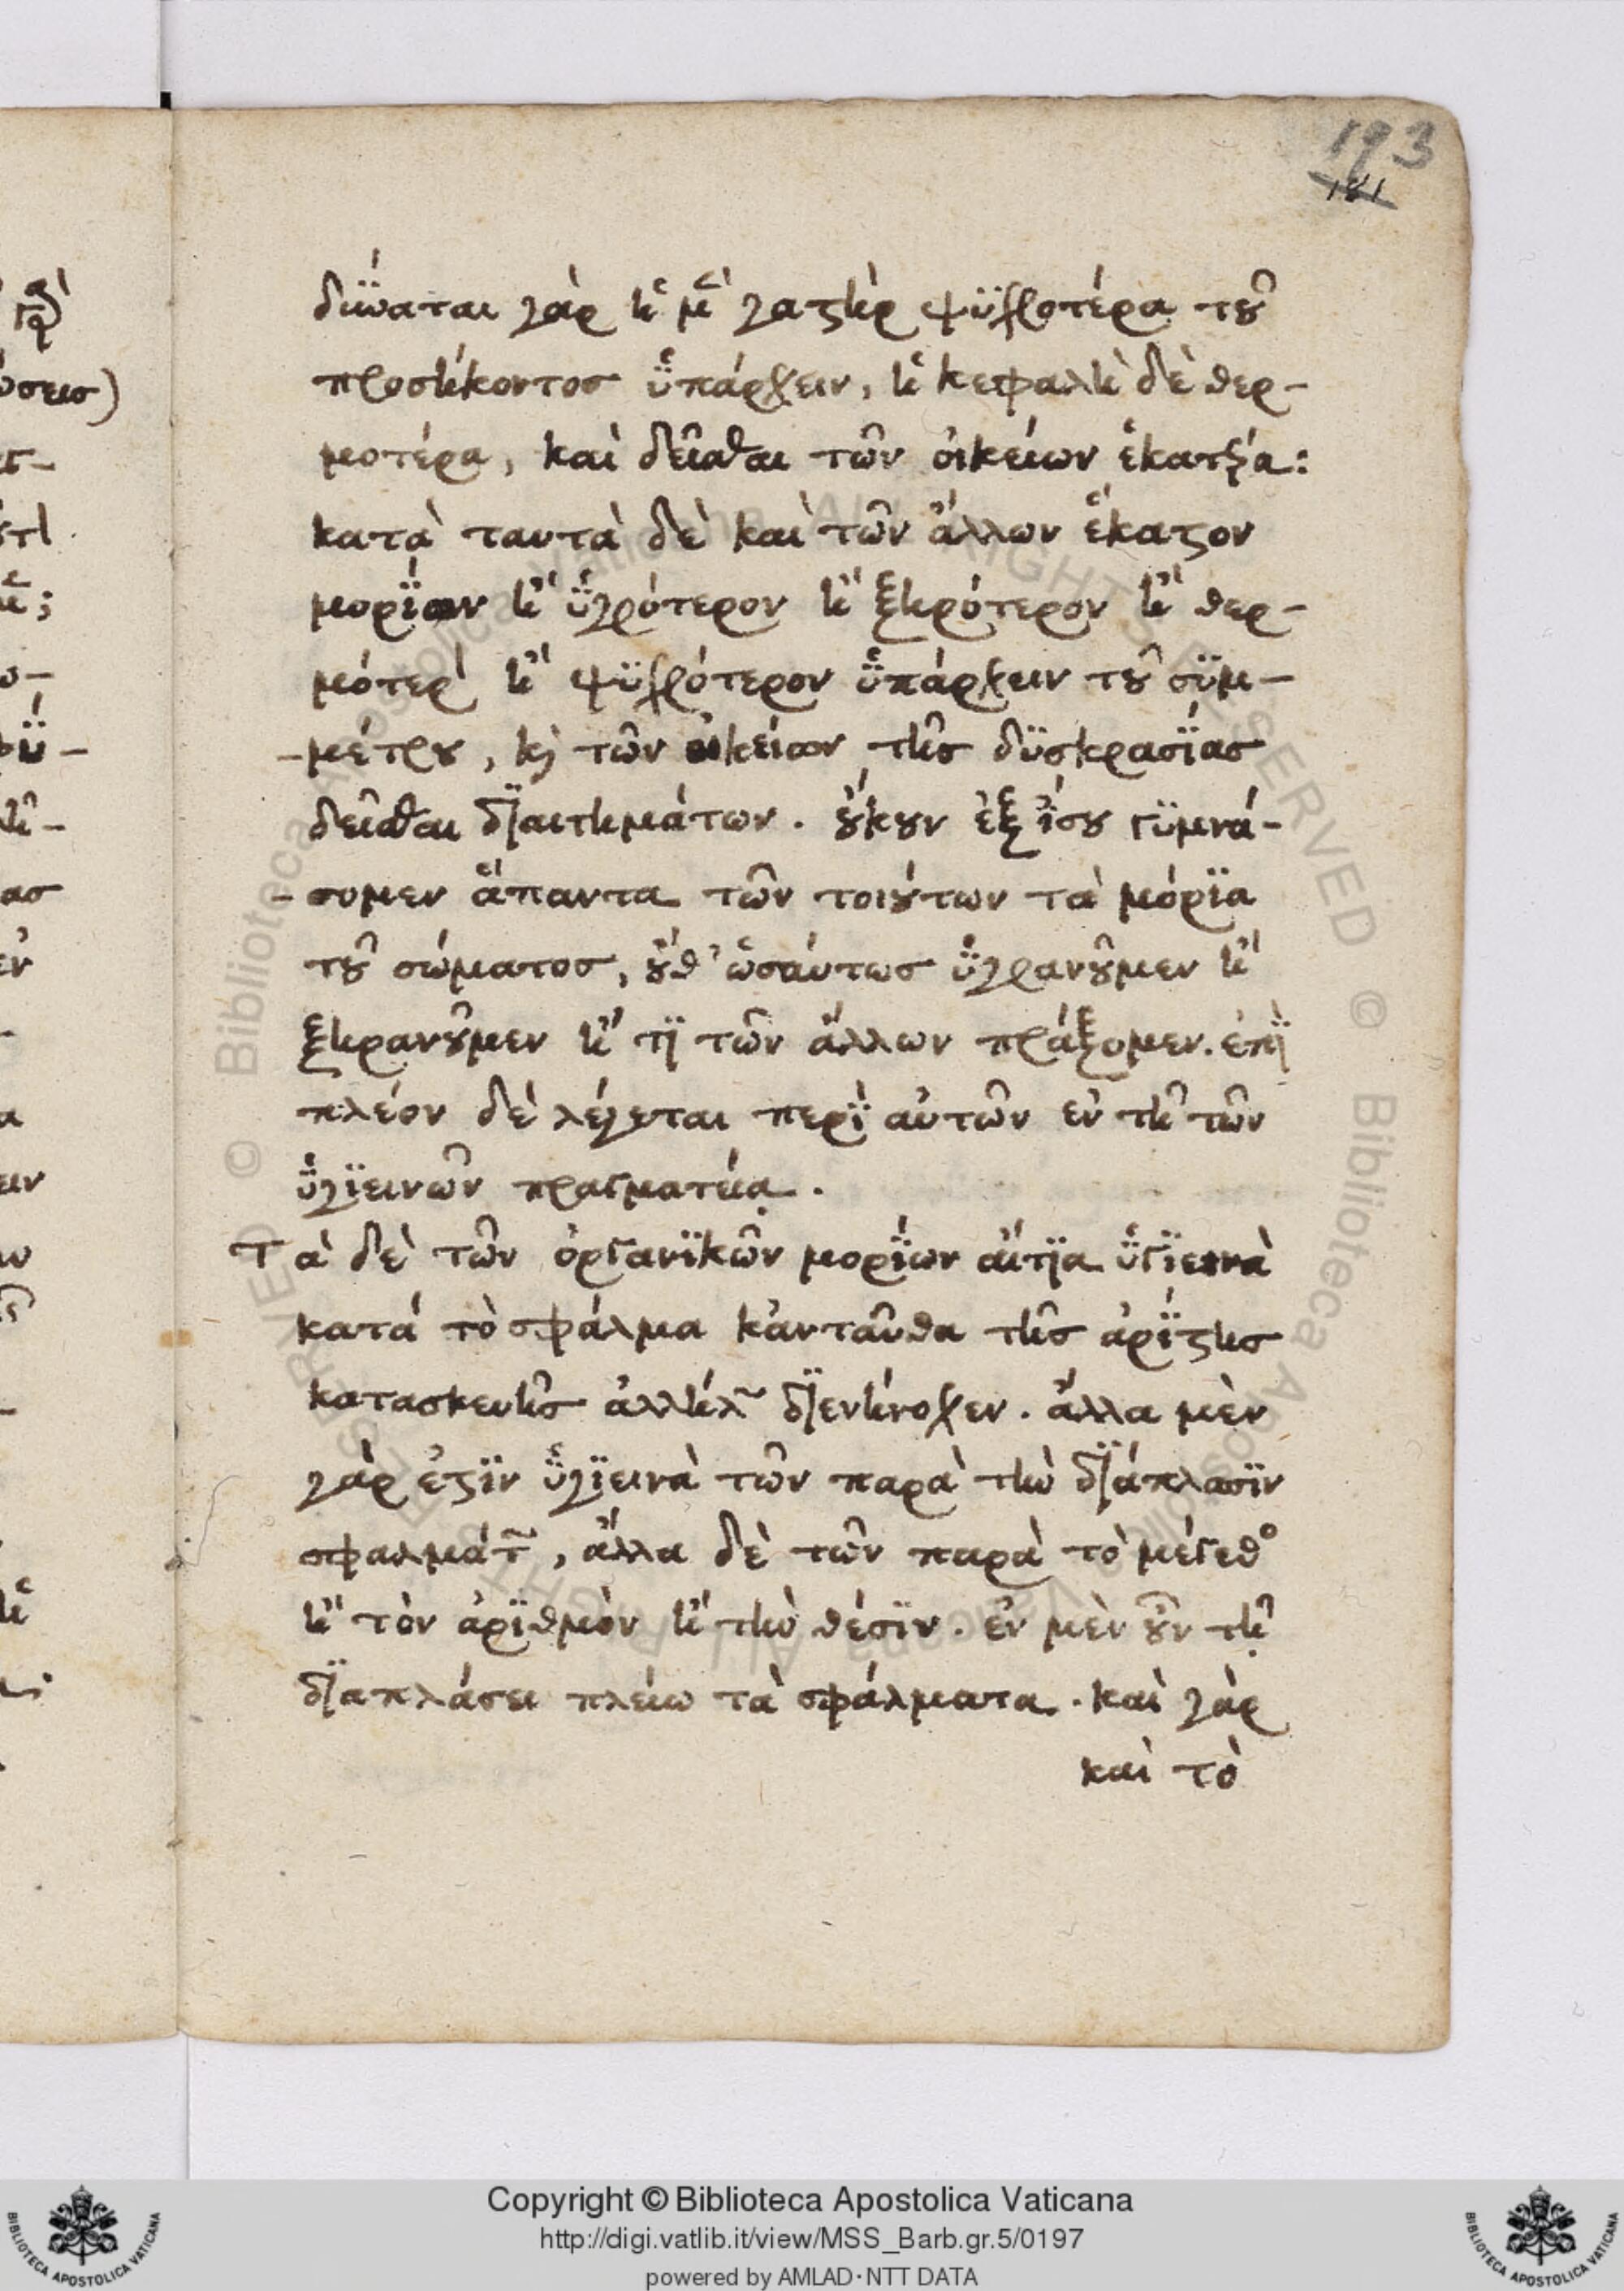 193
181
δύναται γὰρ ἡ μὲν γαστὴρ ψϋχροτέρα τοῦ
προσήκοντος ὑπάρχειν, ἡ κεφαλὴ δὲ θερ-
μοτέρα, καὶ δεῖσθαι τῶν οἰκείων ἑκατέρα:
κατὰ ταυτὰ δὲ καὶ τῶν ἄλλων ἕκαστον
μορΐων ἢ ὑγρότερον ἢ ξηρότερον ἢ θερ-
μότερον ἢ ψϋχρότερον ὑπάρχειν τοῦ σϋμ-
-μέτρου, καὶ τῶν οἰκείων τῆς δϋσκρασΐας
δεῖσθαι δϊαιτημάτων. οὔκουν ἐξ ἴσου γϋμνά-
-σομεν ἅπαντα τῶν τοιούτων τὰ μόρϊα
τοῦ σώματος, οὔθ' ὡσαύτως ὑγρανοῦμεν ἢ
ξηρανοῦμεν ἤ τϊ τῶν ἄλλων πράξομεν. ἐπῒ
πλέον δὲ λέγεται περῒ αὐτῶν ἐν τῇ τῶν
ὑγϊεινῶν πραγματείᾳ.
Τὰ δὲ τῶν ὀργανϊκῶν μορΐων αἴτϊα ὑγϊεινὰ
κατά τὸ σφάλμα κἀνταῦθα τῆς ἀρΐστης
κατασκευῆς ἀλλήλων δϊενήνοχεν. ἄλλα μὲν
γὰρ ἐστϊν ὑγϊεινὰ τῶν παρὰ τὴν δϊάπλασϊν
σφαλμάτων, ἄλλα δὲ τῶν παρὰ τὸ μέγεθος
ἢ τὸν ἀρϊθμὸν ἢ τὴν θέσϊν. ἐν μὲν οὖν τῇ
δϊαπλάσει πλείω τὰ σφάλματα. καὶ γὰρ
καὶ τὸ
Copyright © Biblioteca Apostolica Vaticana
http://digi.vatlib.it/view/MSS_Barb.gr.5/0197
powered by AMLAD·NTT DATA
BIBLIOTECA APOSTOLICA VATICANA
BIBLIOTECA APOSTOLICA VATICANA